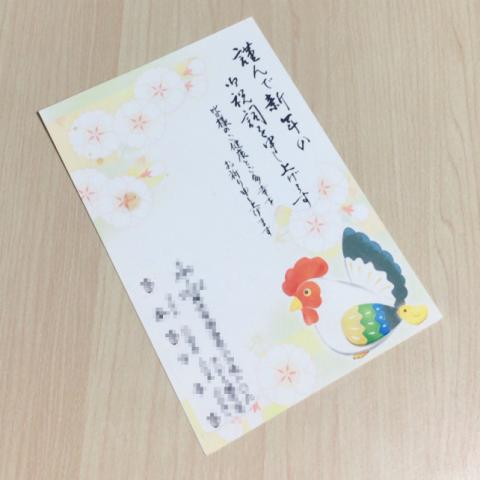 謹んで新年の
御祝詞を申し上げます
皆様のご健康とご多幸を
お祈り申し上げます